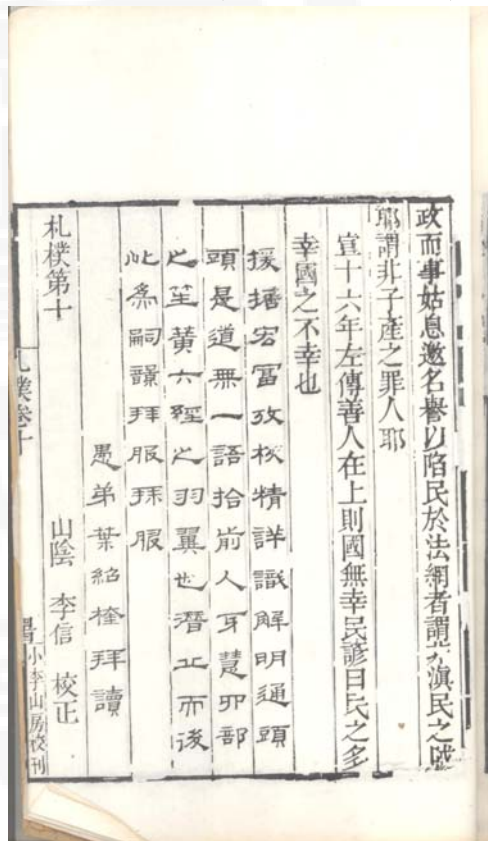 政而事姑息邀名譽以陷民於法網者謂非滇民之賊
耶謂非子產之罪人耶
宣十六年左傳善人在上則國無幸民諺曰民之多
幸國之不幸也
援據宏富攷核精詳識解明通頭
頭是道無一語拾前人牙慧四部
之笙簧六經之羽翼也潛丘而後
此為嗣韻拜服拜服
愚弟葉紹楏拜讀
札樸第十 山陰 李信 校正
札樸卷十 小李山房校刊